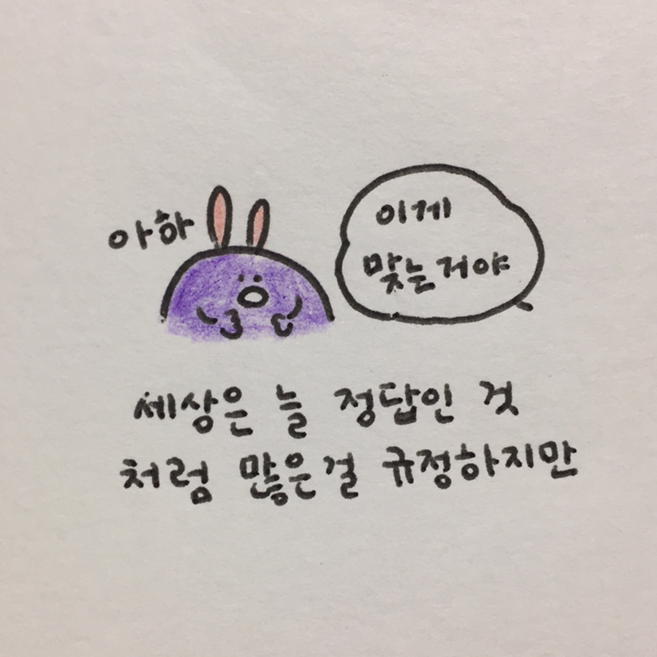 아하
이게
맞는거야
세상은 늘 정답인 것
처럼 많은걸 규정하지만